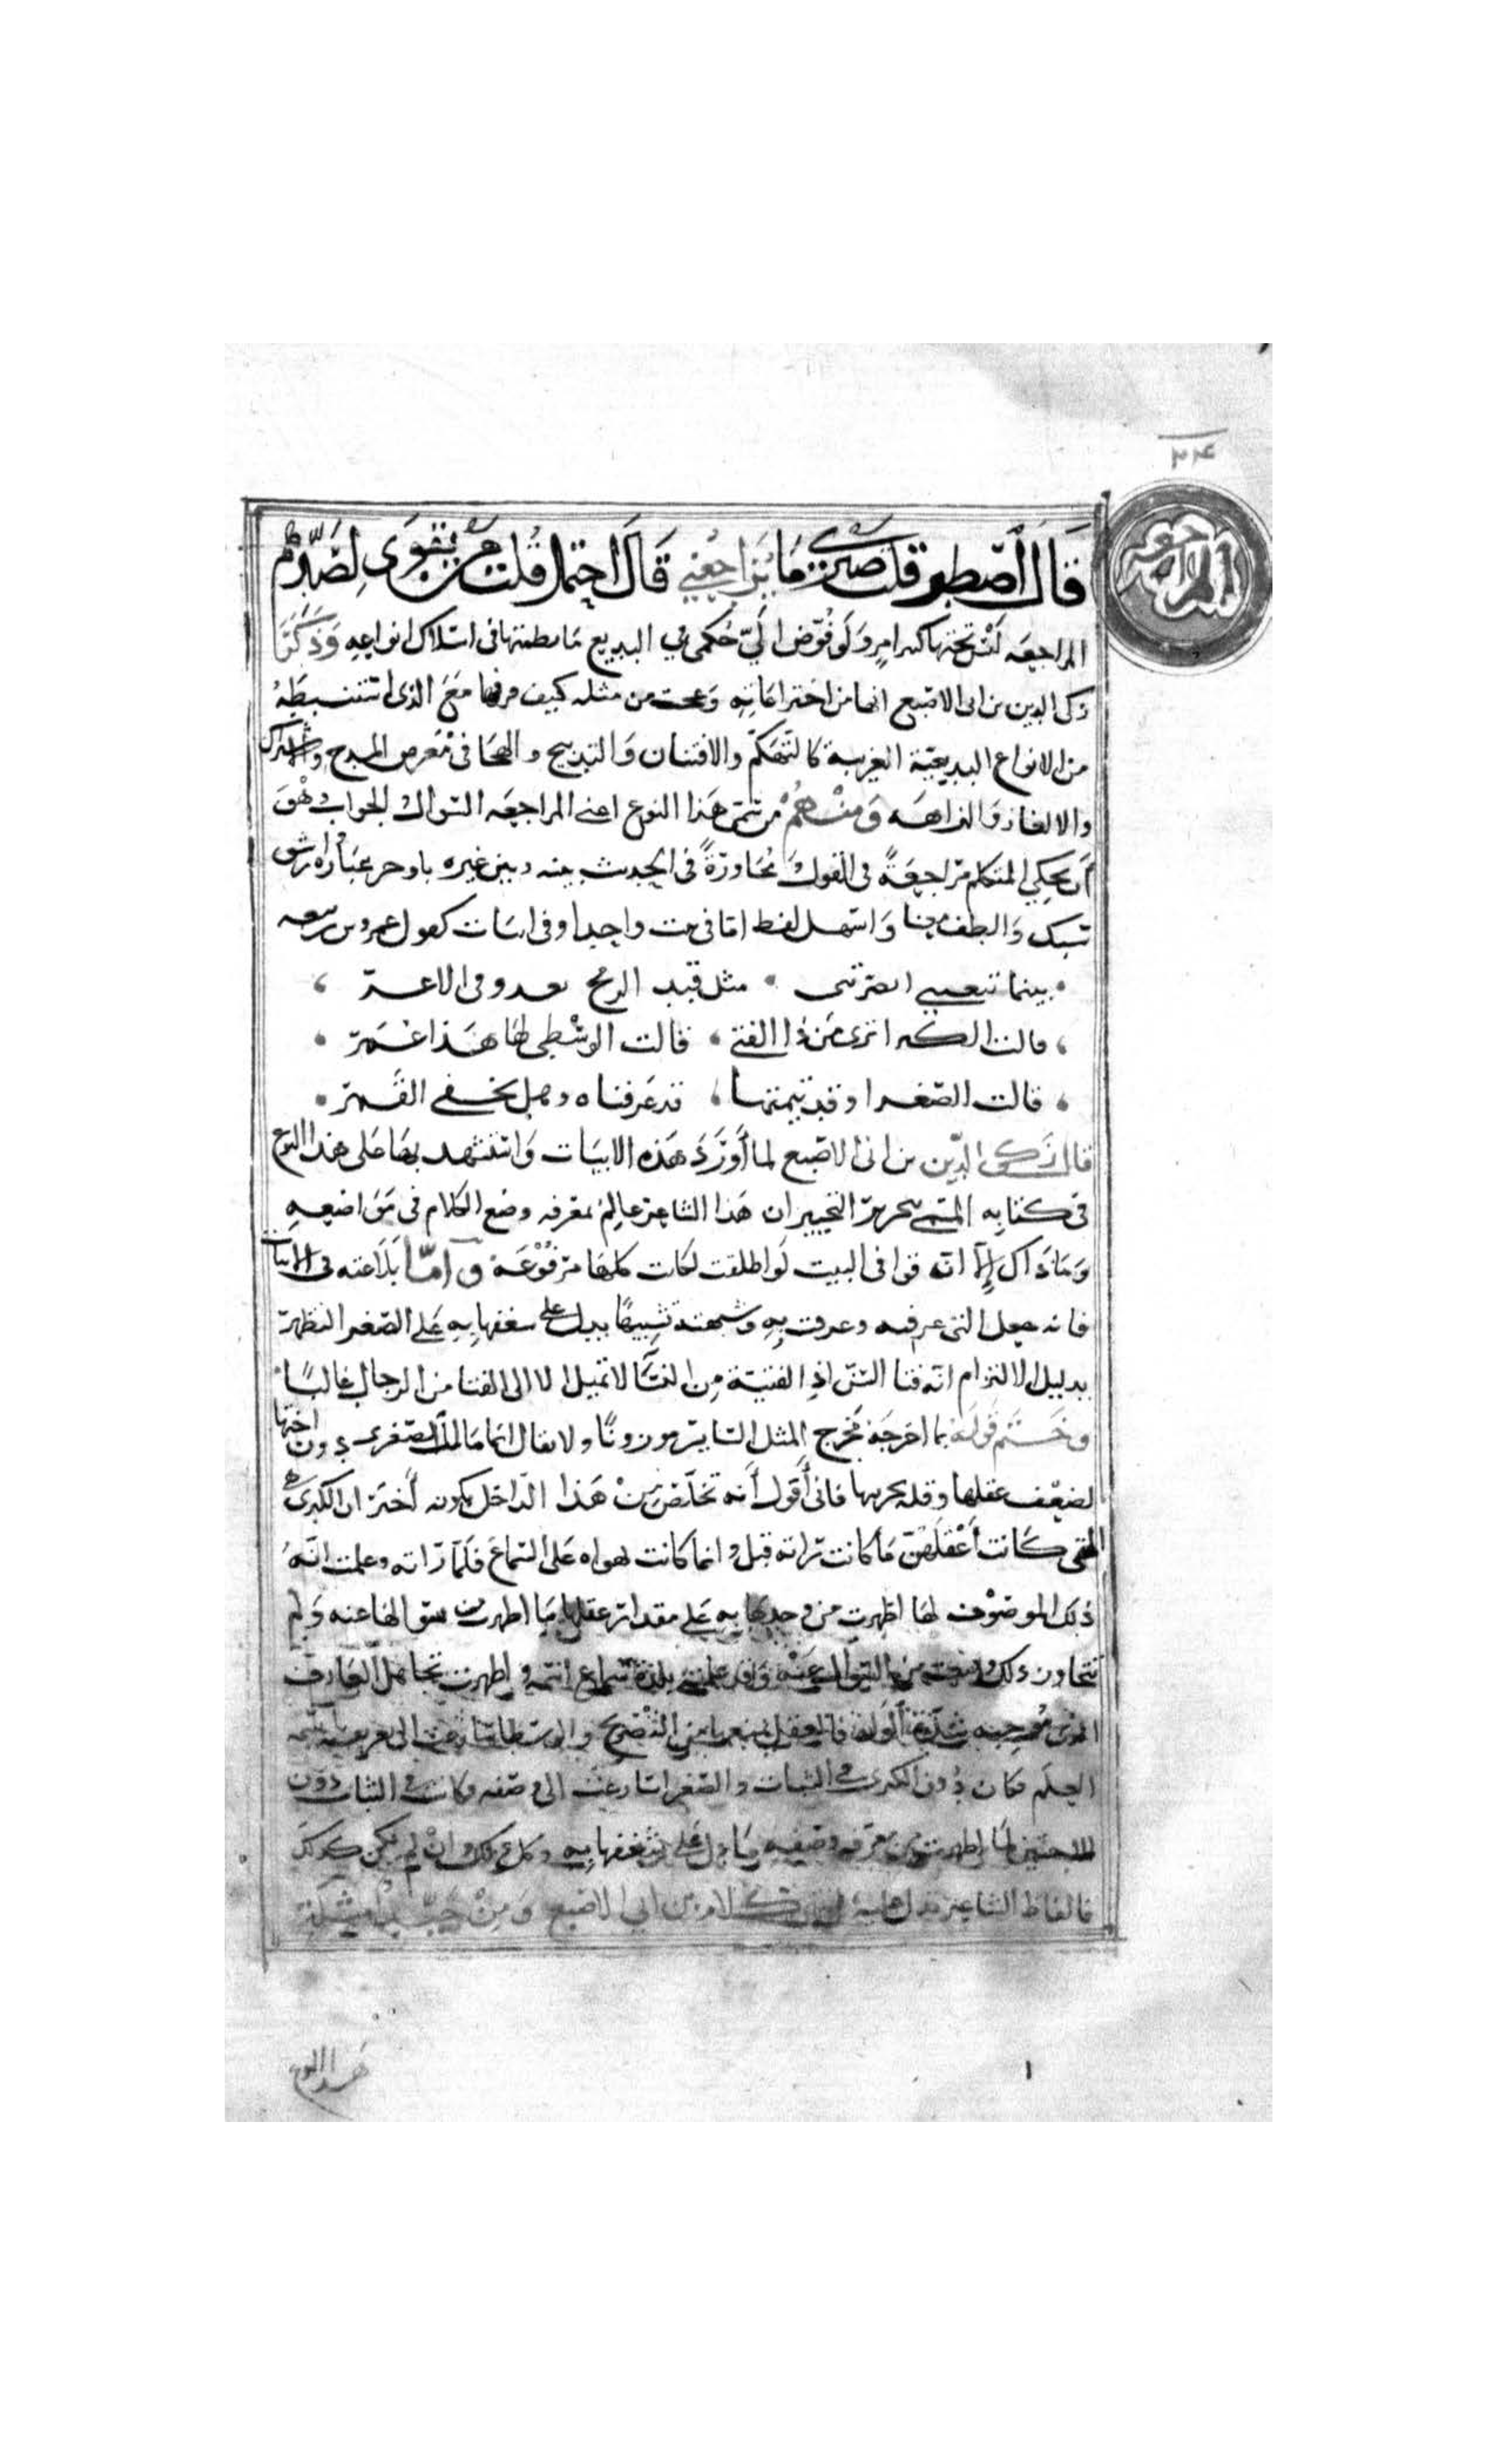 ٢٢٤
المراجعه
قَالَ اصْطبر قلت صبرى مَا يُرَاجعُني قَالَ احتمل قُلت مَن يقوَى لِصَدِّهم
المراجعه لَيْسَ تحتها كبير امرٍ وَلَو فُوِّض الَيّ حُكمى في البديع مَا نظمتها فى اسلاك انواعهِ وَذَكَرَ
زكى الدين بن ابى الاصبع انها من اختراعَاتِهِ وَعجبت من مثله كيف قربها مَعَ الذى استنبطهُ
من الانواع البديعيّة الغريبة كالتهكم والافتنان وَالتدبيج والهجَا فى مَعرض المدح والاشتراك
والالغاز وَالنزاهه وَمنْهُمْ من سمّى هَذا النوع اعنى المراجعَه السّوال والجواب وَهوَ
اَن يحكي المتكلم مراجعَةً فى القول وَمُحَاورَةً فى الحديث بينه وبين غيره باوجز عبَاره وارشق
سَبك وَالطف معنا وَاسهل لفظ اما فى بيت واحد او فى ابيات كقول عمر بن ربيعه
بينما ينعتنني ابصرننى مثل قيد الرمح يعدو بى الاغر
قالت الكبرا ترى مَن ذا الفتى قالت الوسْطى لها هَذا عُمَر
قالت الصّغرا وقد تيمتها قد عَرفناه وهل يخفى القَمر
قال زَكى الدّين بن ابى الاصبع لما أوْرَدَ هَذه الابيَات وَاستشهد بهَا على هَذا النوع
فى كتابِهِ المسمى بتحرير التحبير ان هَذا الشاعر عالمٌ بمعرفه وضع الكلام فى مَوَاضعهِ
وَمَا ذَاك إلا انّه قوافى البيت لَو اطلقت لكانت كلهَا مرفُوْعَة وَامّا بَلَاغته فى الابيات
فانه جعل التى عرفته وعرفت بِهِ وشبهته تشبيهًا يدل على شغفها بِهِ هى الصّغرا لتظهر
بدليل الالتزام انّه فتا السّن اذ الفتيّة مِن النسَآ لا تميل الا الى الفتا من الرجال غالبًا
وخَتَم قَولَه بما اخرجَهُ مخرج المثل السّاير موزونًا ولا يقال انما مَالت الصّغرى دون اختها
لضعْف عقلها وقله تجربتها فانى أقول أنه تخلّص مِنْ هَذا الدّاخل بكونه أخبَرَ ان الكبرَى
التى كَانت أعْقلَهُنّ مَا كانت رَاته قبل وانما كانت تهواه عَلى السّمَاع فلَمّا رَاته وعلمت انهُ
ذلك الموصوْف لهَا اظهرت من وجدهَا بِهِ عَلى مقدار عقلها مَا اظهرت من سوالهَا عنه وَلم
تتجاوز ذلك وقنعت من السّوال عَنْه وَقد علمته بلذة سَماع اسمه واظهرت تجاهل العَارف
الذى مُوجبه شدّة الوله فالعقل يمنعها من التصْريح والوسطا سَارعت الى تعريفه باسمه
العلم فكان دُون الكبرى في الثبات والصّغرا سَارعَت الى صفته وكانت في الثبات دون
الاختين لما اظهرت من معرفه وصفهِ مَا دل على شغفها بِهِ وكل ذلك وان لم يكن كذلك
فالفاظ الشاعر تدل عليه انتهى كلام بن ابى الاصبع وَمِنْ
هَذا النوع